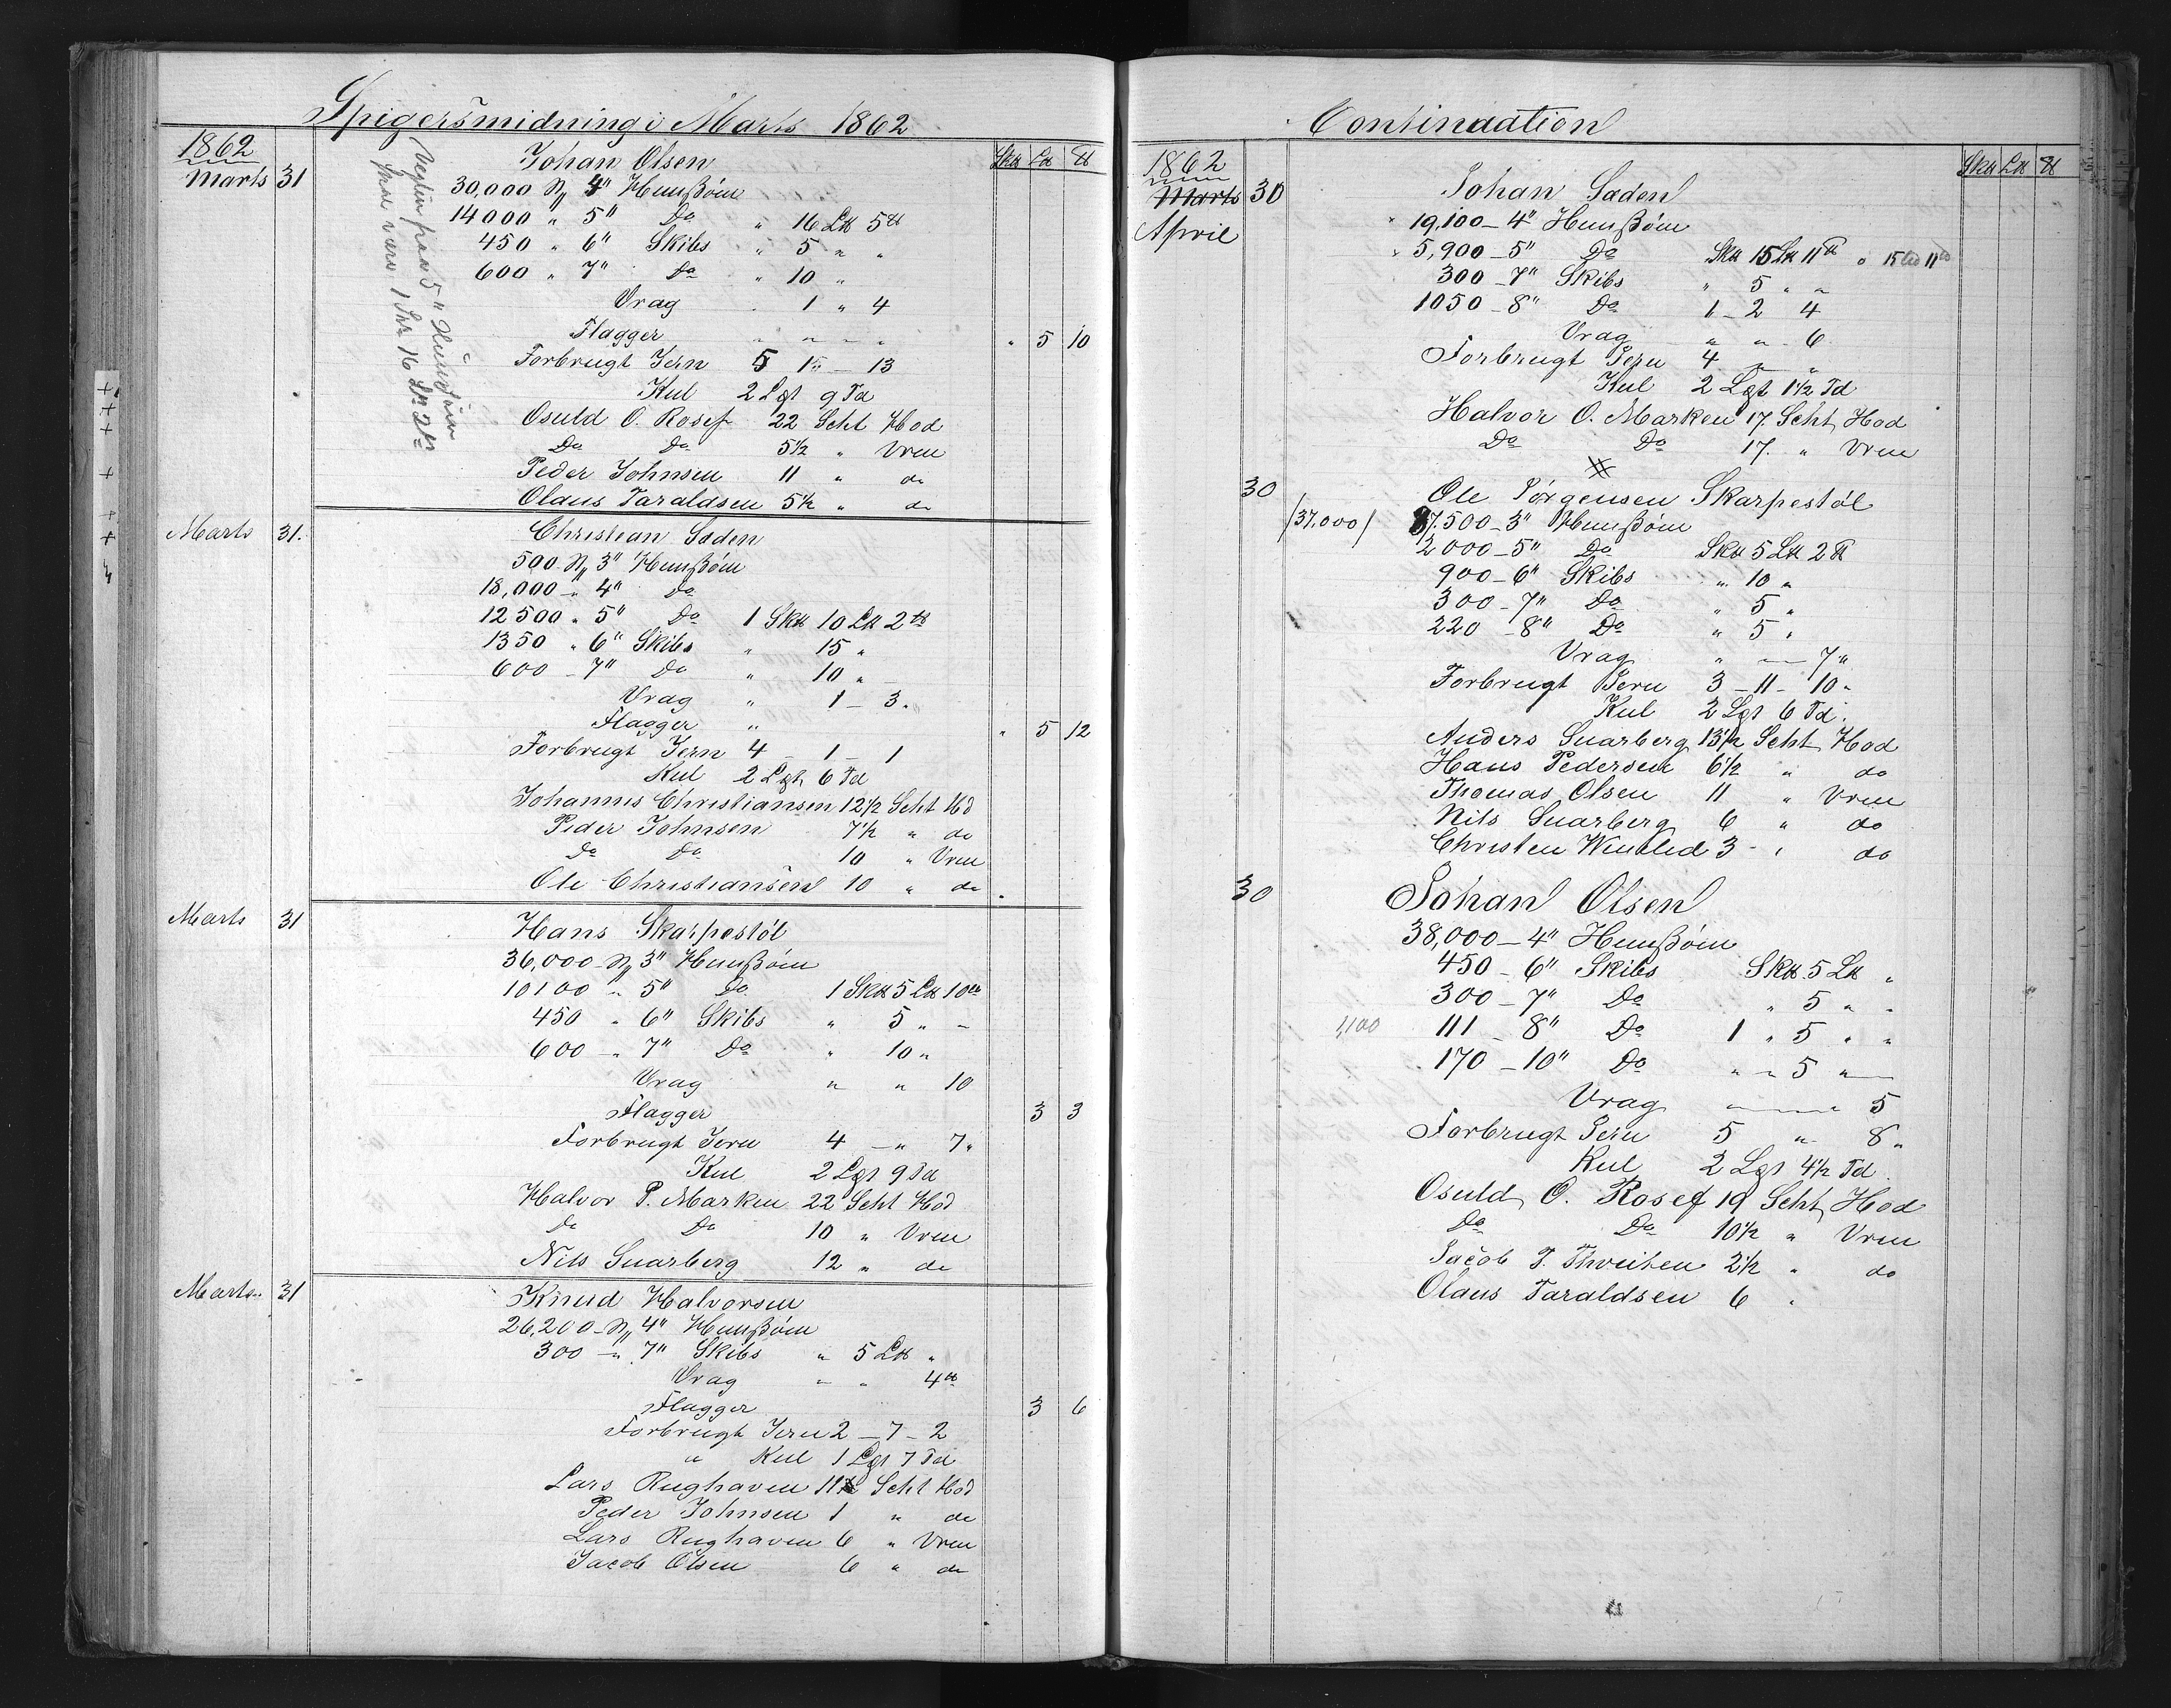 Spigersmidning i Marts 1862
1862
Sk℔ L℔ ℔
Marts 31 Johan Olsen
30,000 N,, 4" Hunßöm
14000 " 5" Do " 16 L℔ 5 ℔
450 " 6" Skibs " 5 " "
600 " 7" Do " 10 "
Vrag . 1 " 4
Flagger " " " " " 5 10
Forbrugt Jern 5 15 - 13
Kul 2 Lgt 9 Td
Osuld O. Rosef 22 Scht Hod
Do Do 5½ " Vren
Peder Johnsen 11 " do
Olaus Taraldsen 5½ " do
Vegten paa 5" Hunßöm
skal være 1 Sk℔ 16 L℔ 2 ℔
Marts 31. Christian Saden
500 N,, 3" Hunßöm
18,000 - " 4" Do
12500 " 5" Do 1 Sk℔ 10 L℔ 2 ℔
1350 " 6" Skibs " 15 "
600 - 7" Do " 10 "
Vrag " 1 - 3 "
Flagger " " 5 12
Forbrugt Jern 4 - 1 - 1
Kul 2 Lgt 6 Td
Johannes Christiansen 12½ Scht Hod
Peder Johnsen 7½ " do
Do Do 10 " Vren
Ole Christiansen 10 " do
Marts 31 Hans Skarpestöl
36,000 - N,, 3" Hunßöm
10100 " 5" Do 1 Sk℔ 5 L℔ 10 ℔
450 " 6" Skibs " 5 " -
600 - " 7" Do " 10 "
Vrag " " 10
Flagger 3 3
Forbrugt Jern 4 - " 7 "
Kul 2 Lgt 9 Td
Halvor P. Marken 22 Scht Hod
Do Do 10 " Vren
Nils Snarberg 12 " do
Marts 31 Knud Halvorsen
26,200 - N,, 4" Hunßöm
300 - " 7" Skibs " 5 L℔ "
Vrag - " 4 ℔
Flagger 3 6
Forbrugt Jern 2 - 7 - 2
" Kul 1 Lgt 7 Td
Lars Rughaven 11 Scht Hod
Peder Johnsen 1 " do
Lars Rughaven 6 " Vren
Jacob Olsen 6 " do
Continuation
1862
Sk℔ L℔ ℔
Marts 30 Johan Saden
April
19,100 - 4" Hunßöm
5,900 - 5" Do Sk℔ 15 L℔ 11 ℔ " 15 L℔ 11 ℔
300 - 7" Skibs " 5 " "
1050 - 8" Do 1 - 2 4
Vrag " " - 6
Forbrugt Jern 4 - "
Kul 2 Lgt 1½ Td
Halvor O. Marken 17. Scht Hod
Do Do 17. " Vren
30 Ole Jörgensen Skarpestöl
/37.000/ 37.500 - 3" Hunßöm
2000 - 5" Do Sk℔ 5 L℔ 2 ℔
900 - 6" Skibs " 10 "
300 - 7" Do " 5 "
220 - 8" Do " 5 "
Vrag " - 7 "
Forbrugt Jern 3 - 11 - 10 "
Kul 2 Lgt 6 Td.
Anders Snarberg 13½ Scht Hod
Hans Pedersen 6½ " do
Thomas Olsen 11 " Vren
Nils Snarberg 6 " do
Christen 3 - " do
30 Johan Olsen
38,000 - 4" Hunßöm
450 - 6" Skibs Sk℔ 5 L℔ "
300 - 7" Do " 5 " "
1,100 111 - 8" Do 1 " 5 " "
170 - 10" Do " " 5 " -
Vrag " 5
Forbrugt Jern 5 " 8 "
Kul 2 Lgt 4½ Td
Osuld O. Rosef 19 Scht Hod
Do Do 10½ " Vren
Jacob T. Thveiten 2½ " do
Olaus Taraldsen 6 "